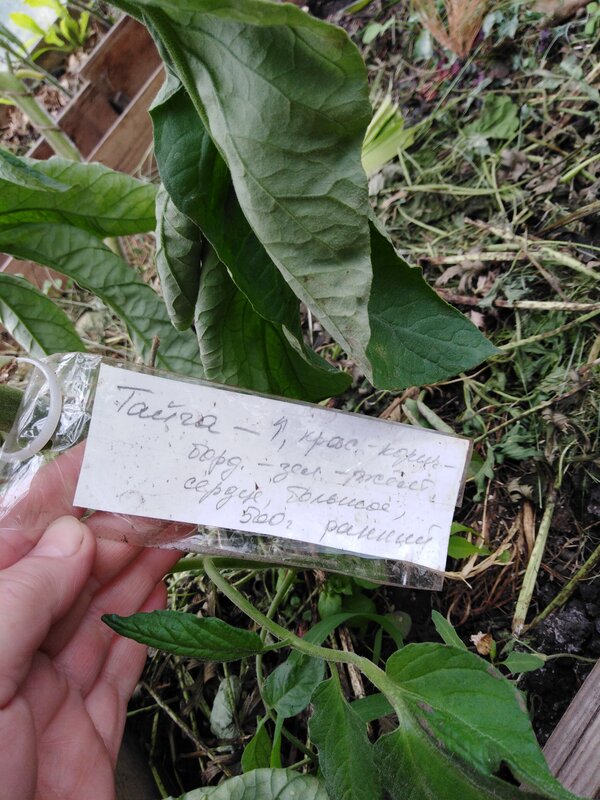 Тайга – ↑, крас.-корич-
борд. - зел. - жёлт,
сердце, большое,
500г ранний